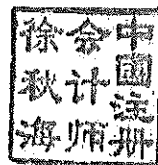 中國注册
会计师
徐秋海